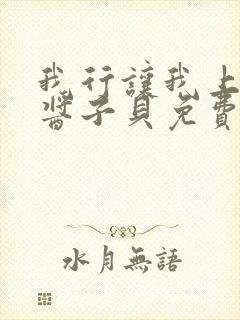 我行讓我上
醬子貝免費
水月無語